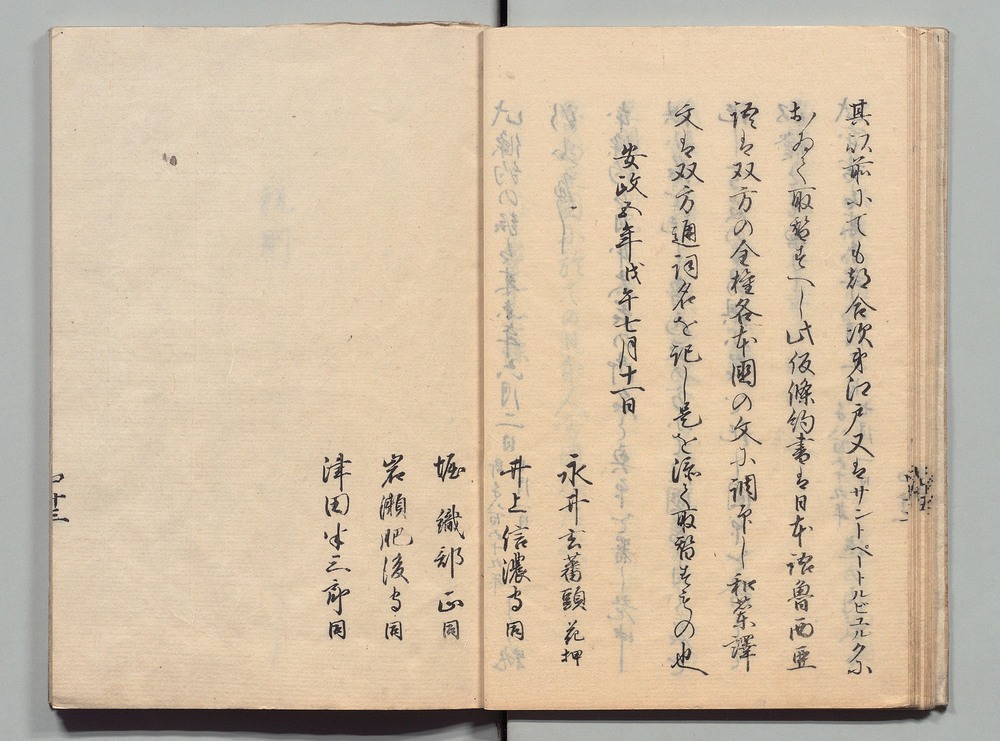 其以前にても都合次第江戸又はサントペートルビユルクに
おゐて取替すへし此仮條約書は日本語魯西亜
語は双方の全権各本國の文に調印し和蘭譯
文は双方通詞名を記し是を添て取替すもの也
安政五年戊午七月十一日
永井玄蕃頭 花押
井上信濃守 同
堀 織部正 同
岩瀬肥後守 同
津田半三郎 同